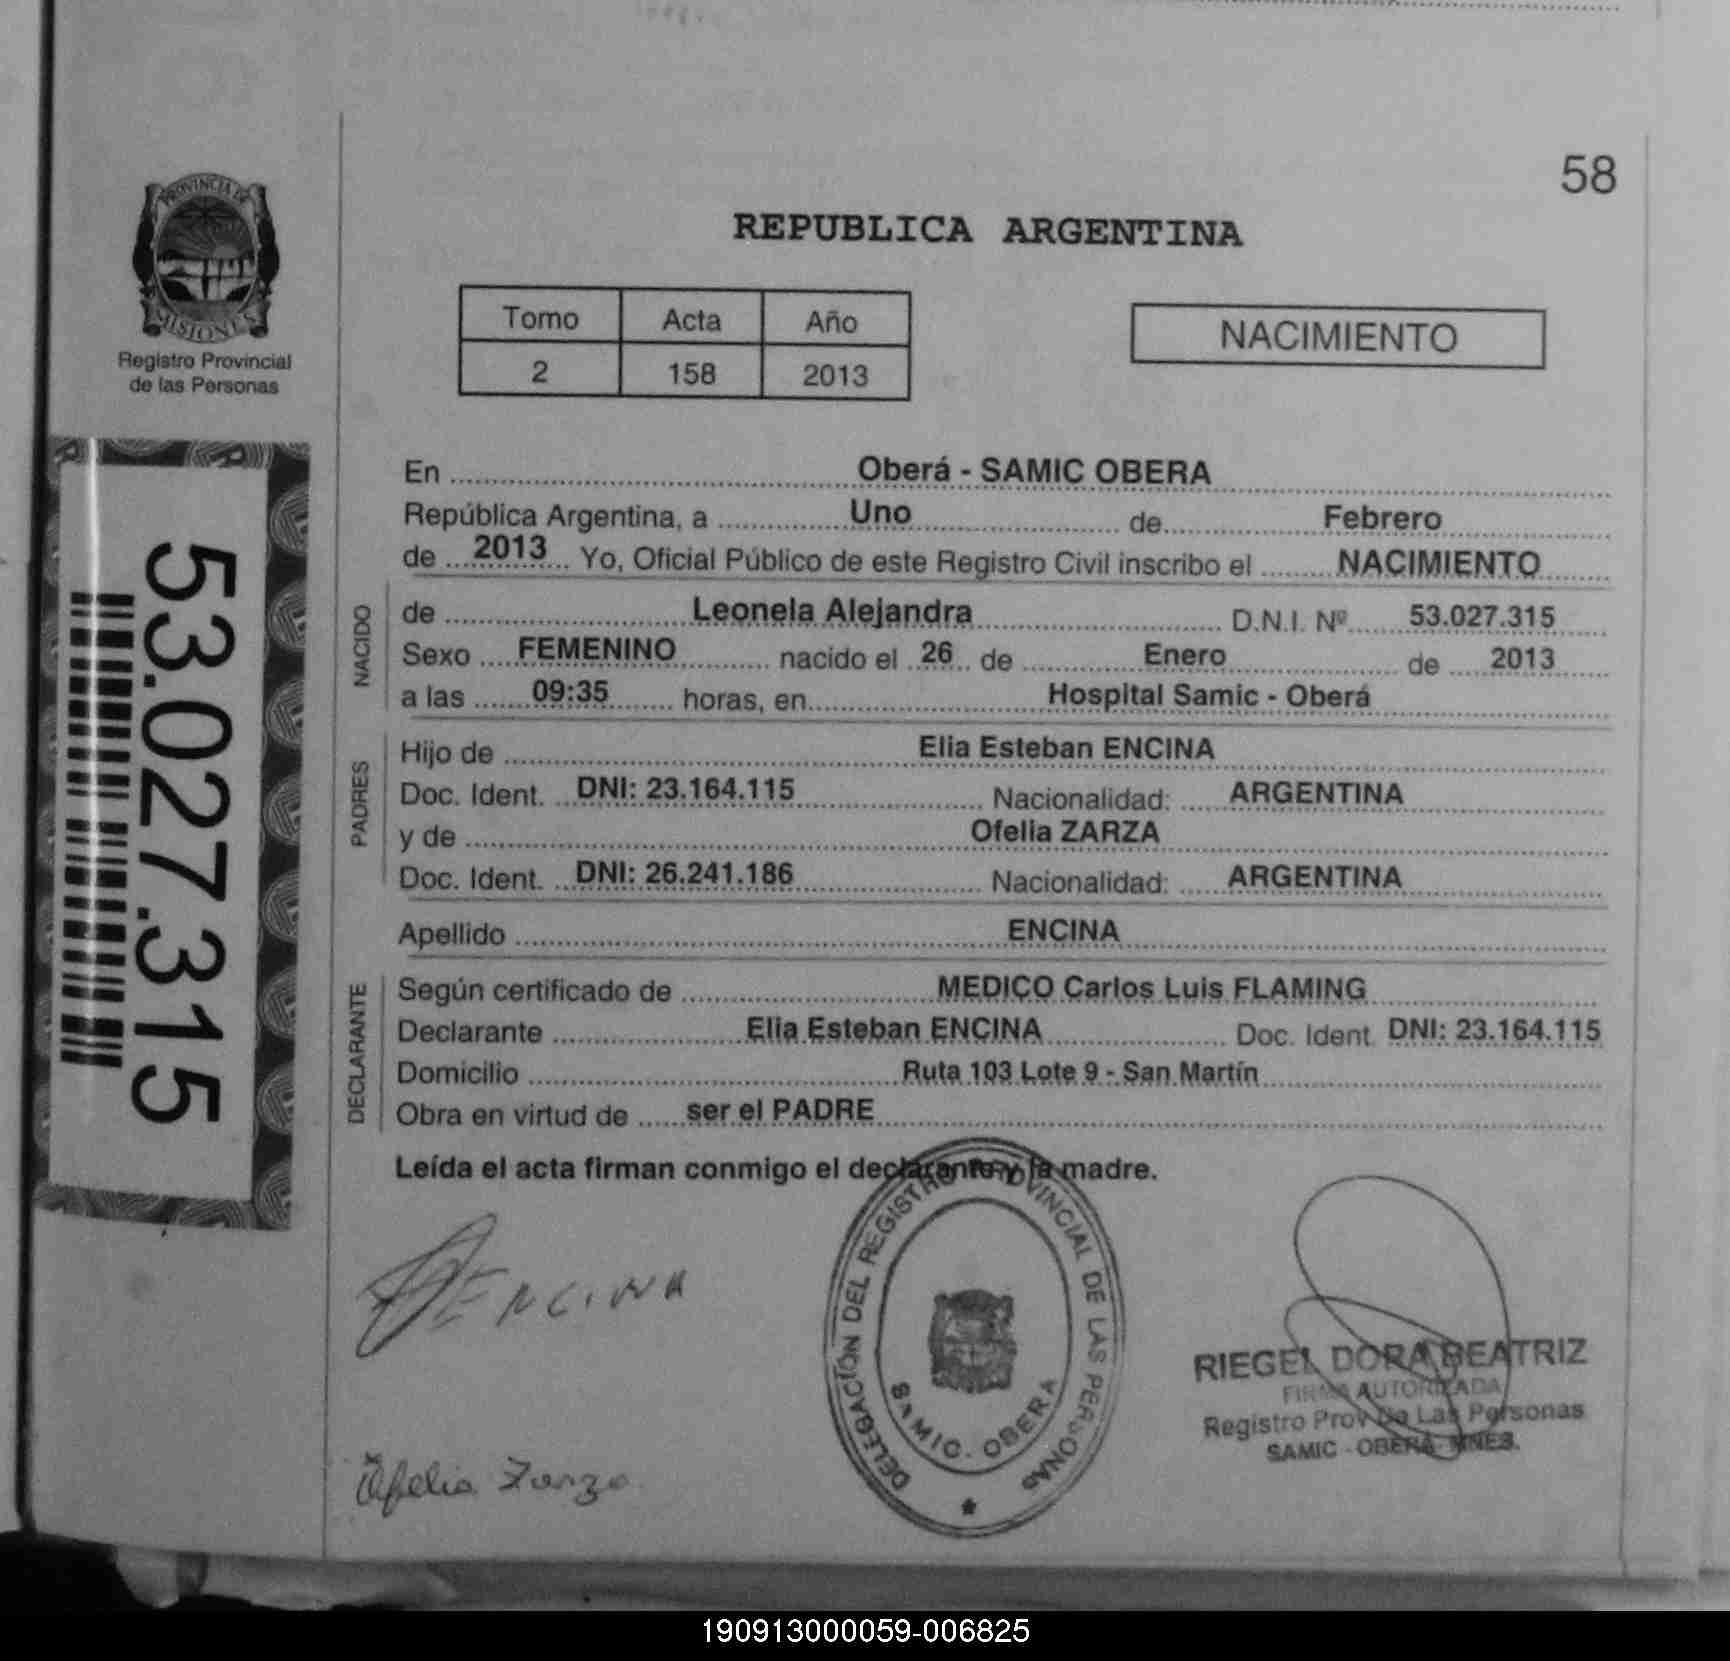 58
PROVINCIA DE
MISIONES
Registro Provincial
de las Personas
REPUBLICA ARGENTINA
Tomo Acta Año
2 158 2013
NACIMIENTO
53.027.315
En Oberá - SAMIC OBERA
República Argentina, a Uno de Febrero
de 2013 Yo, Oficial Público de este Registro Civil inscribo el NACIMIENTO
NACIDO
de Leonela Alejandra D.N.I. Nº 53.027.315
Sexo FEMENINO nacido el 26 de Enero de 2013
a las 09:35 horas, en Hospital Samic - Oberá
PADRES
Hijo de Elia Esteban ENCINA
Doc. Ident. DNI: 23.164.115 Nacionalidad: ARGENTINA
y de Ofelia ZARZA
Doc. Ident. DNI: 26.241.186 Nacionalidad: ARGENTINA
Apellido ENCINA
DECLARANTE
Según certificado de MEDICO Carlos Luis FLAMING
Declarante Elia Esteban ENCINA Doc. Ident. DNI: 23.164.115
Domicilio Ruta 103 Lote 9 - San Martín
Obra en virtud de ser el PADRE
Leída el acta firman conmigo el declarante y la madre.
ENCINA
Ofelia Zarza
DELEGACIÓN DEL REGISTRO PROVINCIAL DE LAS PERSONAS
SAMIC. OBERA
RIEGEL DORA BEATRIZ
FIRMA AUTORIZADA
Registro Prov De Las Personas
SAMIC - OBERÁ - MNES.
190913000059-006825